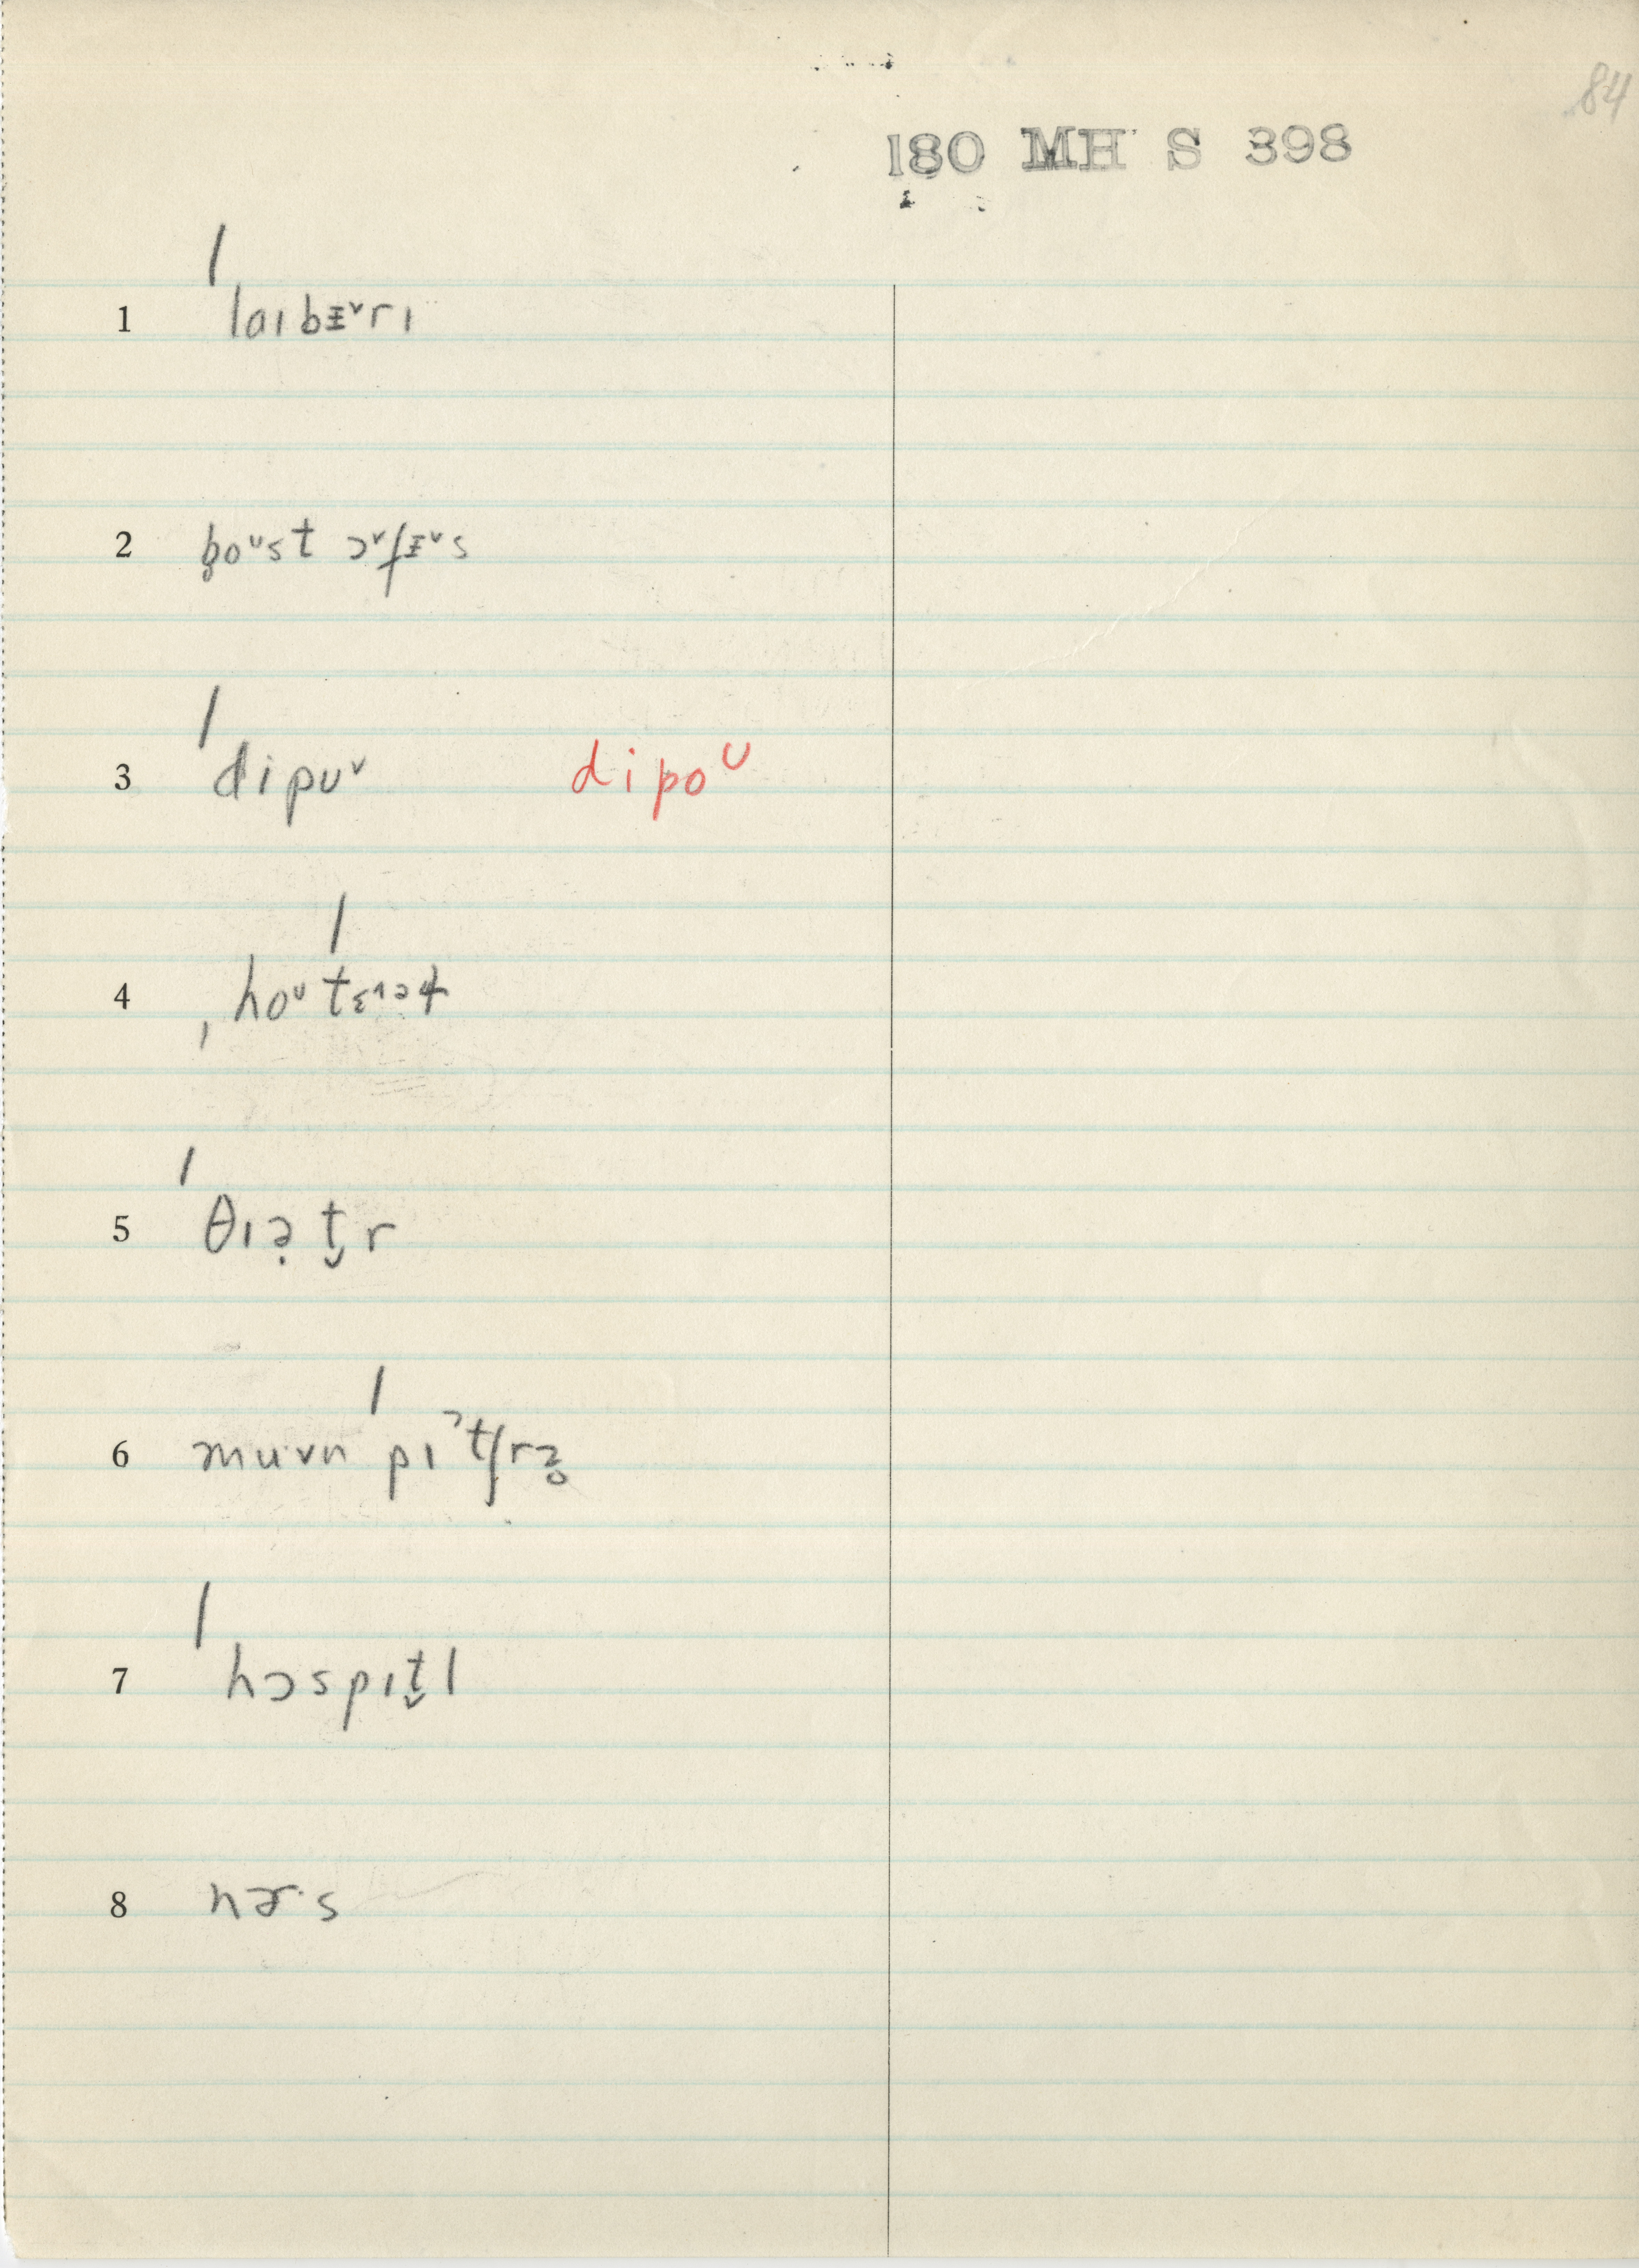 84
180 MH S 398
1 ˈlɑɪbɪ̵ˇrɪ
2 b̥oᵛst ɔˇfɪ̵ˇs
3 ˈdipuˇ dipoᵁ
4 ˌhoᵁˈtɛ
5 ˈθɪə̣t̬r
6 muvn ˈpɪˀtʃrə̥
7 ˈhɔspɪt̬l
8 nɚ·s